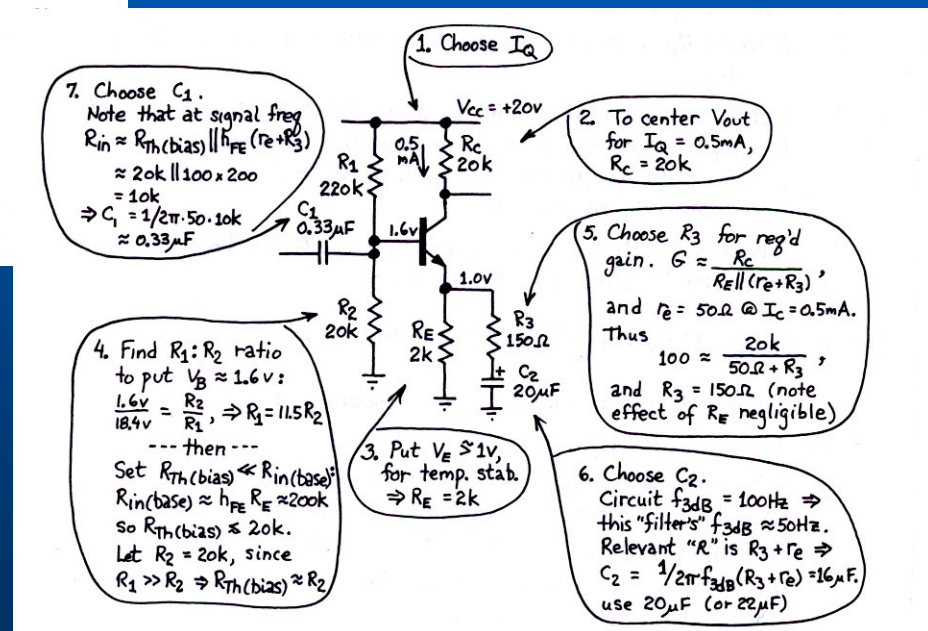 1. Choose IQ
7. Choose C1.
Note that at signal freq
Rin ≈ RTh(bias)||hFE(re+R3)
≈ 20k || 100 x 200
= 10k
⇒ C1 = 1/2π·50·10k
≈ 0.33μF
Vcc = +20v
0.5
mA
Rc
20k
R1
220k
C1
0.33μF
1.6v
1.0v
R2
20k
RE
2k
R3
150Ω
+ C2
20μF
2. To center Vout
for IQ = 0.5mA,
Rc = 20k
5. Choose R3 for req'd
gain. G ≈ Rc / RE||(re+R3) ,
and re = 50Ω @ Ic = 0.5mA.
Thus
100 ≈ 20k / 50Ω + R3 ,
and R3 = 150Ω (note
effect of RE negligible)
4. Find R1:R2 ratio
to put VB ≈ 1.6v:
1.6v / 18.4v = R2 / R1, ⇒ R1 = 11.5R2
--- then ---
Set RTh(bias) ≪ Rin(base):
Rin(base) ≈ hFE RE ≈ 200k
so RTh(bias) ≤ 20k.
Let R2 = 20k, since
R1 >> R2 ⇒ RTh(bias) ≈ R2
3. Put VE ≳ 1v,
for temp. stab.
⇒ RE = 2k
6. Choose C2.
Circuit f3dB = 100Hz ⇒
this "filter's" f3dB ≈ 50Hz.
Relevant "R" is R3 + re ⇒
C2 = 1/2πf3dB(R3+re) = 16μF.
use 20μF (or 22μF)